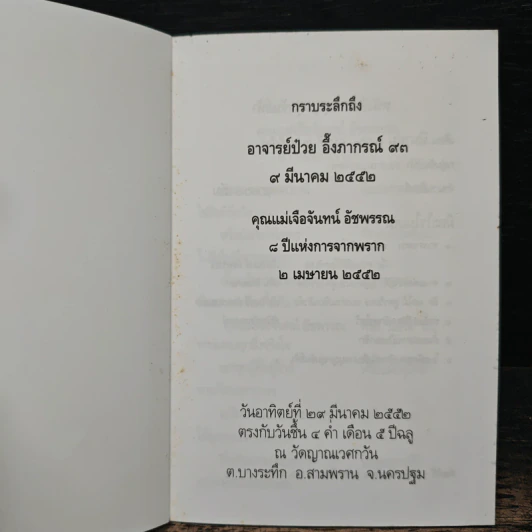 กราบระลึกถึง
อาจารย์ป๋วย อึ๊งภากรณ์ ๙๓
๙ มีนาคม ๒๕๕๒
คุณแม่เจือจันทน์ อัชพรรณ
๘ ปีแห่งการจากพราก
๒ เมษายน ๒๕๕๒
วันอาทิตย์ที่ ๒๙ มีนาคม ๒๕๕๒
ตรงกับวันขึ้น ๔ ค่ำ เดือน ๕ ปีฉลู
ณ วัดญาณเวศกวัน
ต.บางระทึก อ.สามพราน จ.นครปฐม